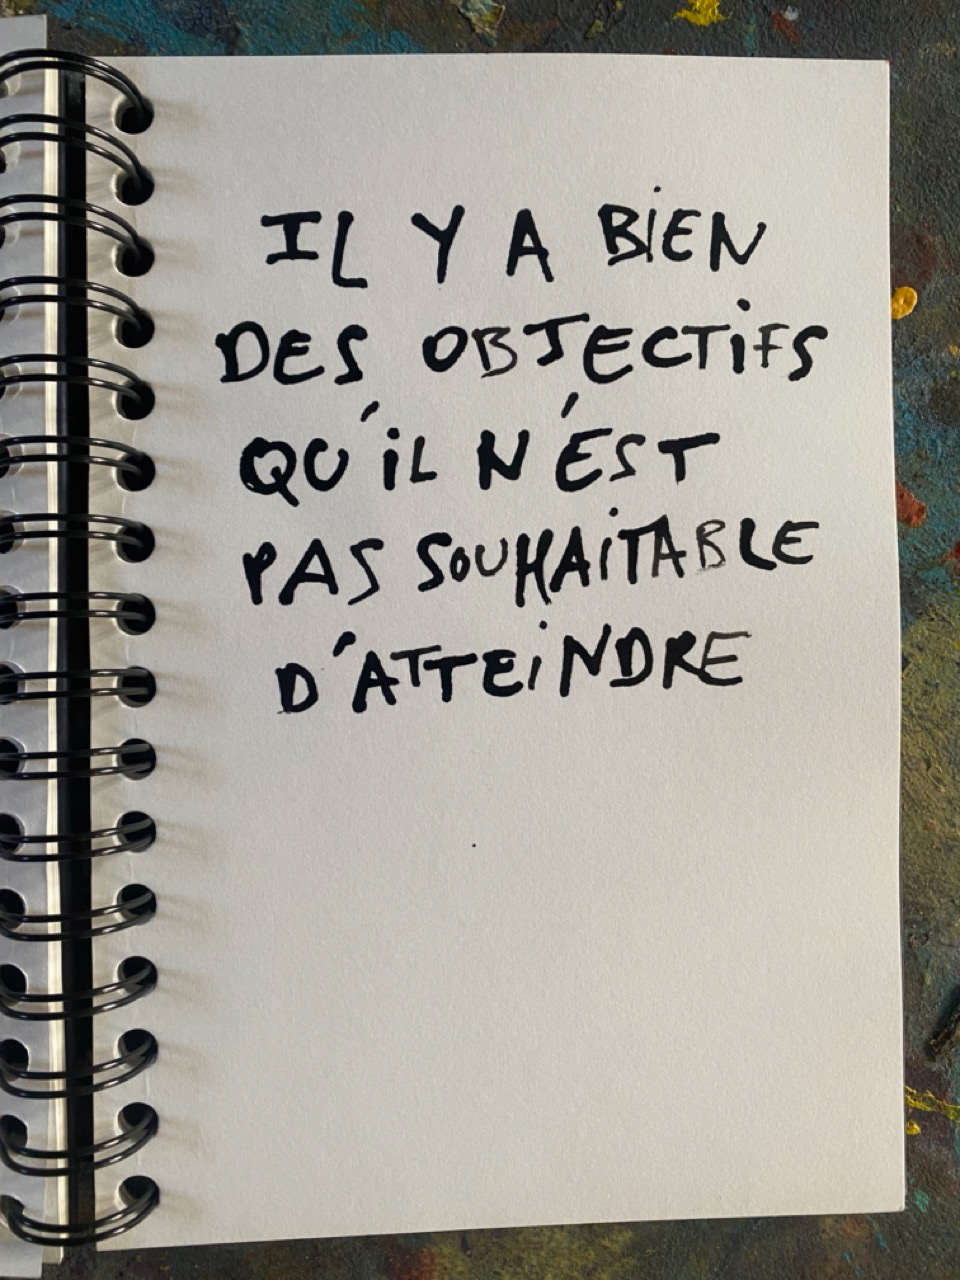 IL Y A BiEN
DES OBJECTiFS
QU'iL N'EST
PAS SOUHAiTABLE
D'ATTEiNDRE